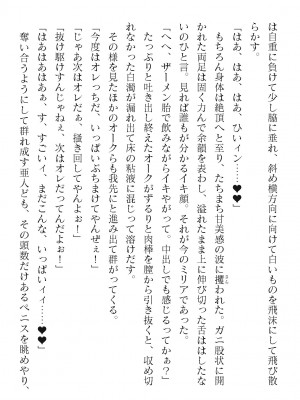 は自重に負けて少し脇に垂れ、斜め横方向に向けて白いものを飛沫にして飛び散
らかす。
「はあ、はあ、はあ、ひィン……♥♥」
もちろん身体は絶頂へと至り、たちまち甘美感の波に攫われた。ガニ股状に開
かれた両足は固く力んで余韻を表わし、溢れたまま上に伸び切った舌ははしたな
いのひと言。見れば誰もが分かるイキ顔。それが今のミリアであった。
「へへ、ザーメン胎で飲みながらイキやがって、中出しでも感じるってかぁ?」
たっぷりと吐き出し終えたオークがずるりと肉棒を膣から引き抜くと、収め切
れなかった白濁が漏れ出て床の粘液に混じって溶け出す。
その様を見たほかのオークらも我先にと進み出て群がってくる。
「今度はオレっちだ、いっぱいぶちまけてやんぜぇ!」
「じゃあ次はオレだぁ、掻き回してやんよぉ!」
「抜け駆けすんじゃねぇ、次はオレだってんだよぉ!」
「はあはあはあぁ、す、すごいィ、まだこんな、いっぱいィィ……♥♥」
奪い合うようにして群れ成す亜人ども、その頭数だけあるペニスを眺めやり、